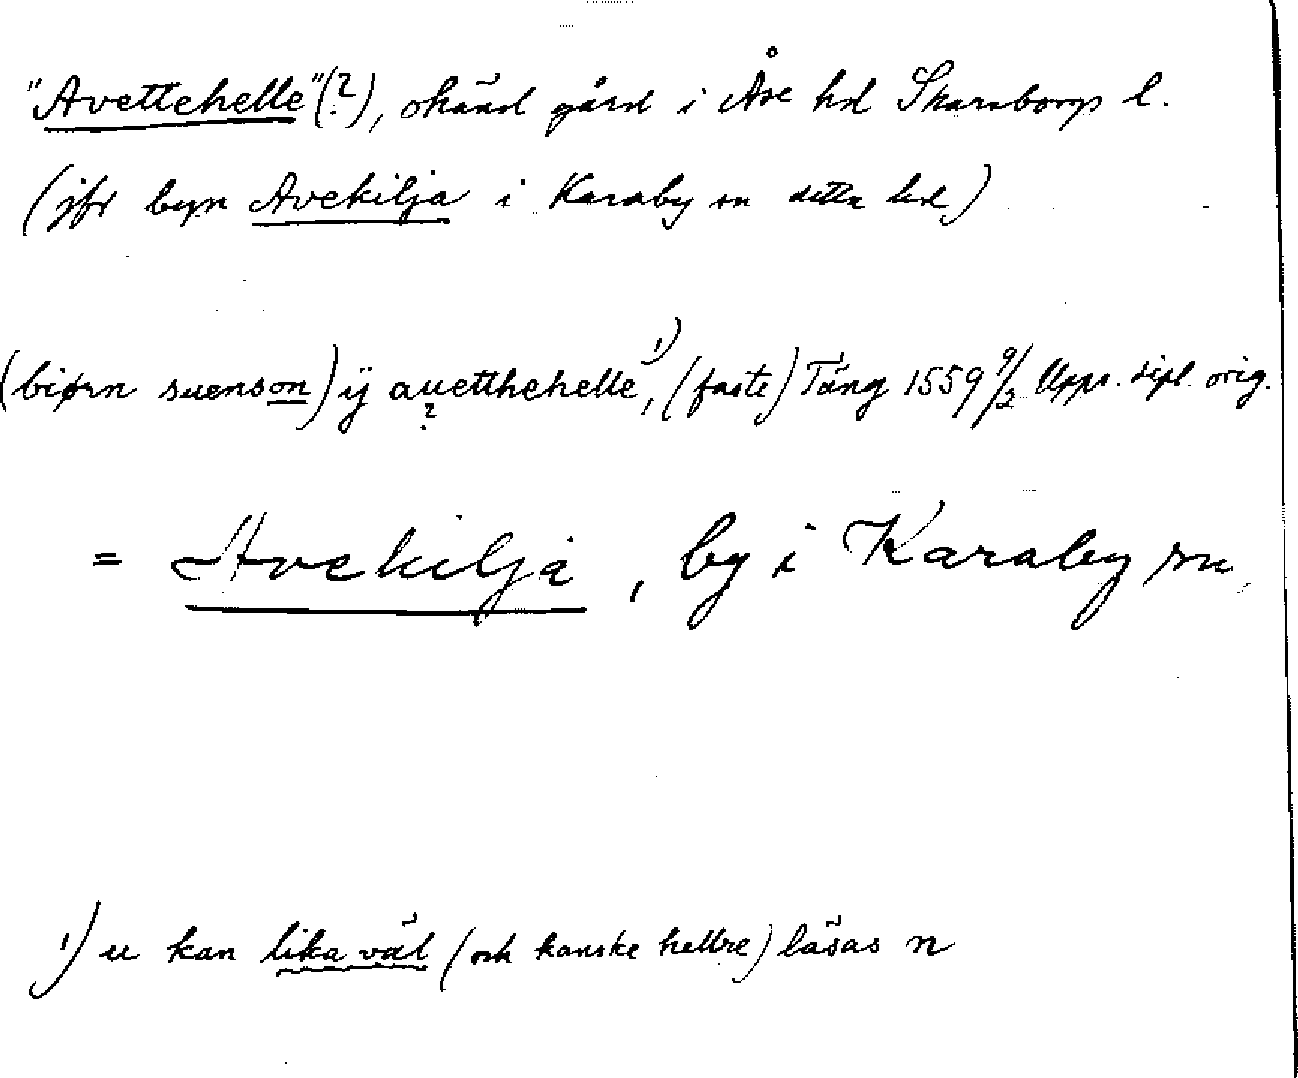 "Avettehelle"(?), okänd gård i Åse hd Skaraborgs l.
(jfr byn Avekilja i Karaby sn detta hd)
(biørn suenson) ÿ auetthehelle,¹⁾ (faste) Täng 1559 9/2 Upps. dipl. orig.
?
= Avekilja, by i Karaby sn
¹⁾ u kan lika väl (och kanske hellre) läsas n